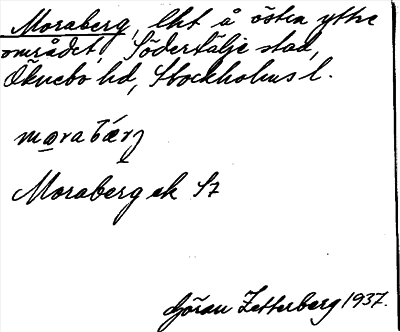 Moraberg, lht å östra yttre
området, Södertälje stad,
Öknebo hd, Stockholms l.
Moraberg ek 57
Göran Zetterberg 1937.